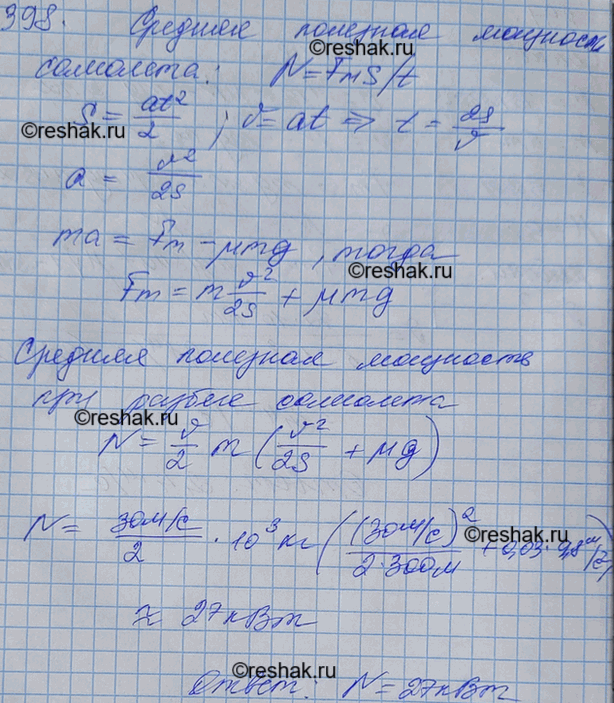 398. Средняя полезная мощность
©reshak.ru
самолета: N = Fтs/t
©reshak.ru
S = at²/2 ; v = at ⇒ t = 2s/v
©reshak.ru
a = v²/2s
ma = Fт - μmg, тогда
©reshak.ru
Fт = m v²/2s + μmg
Средняя полезная мощность
при разбеге самолета
©reshak.ru
N = v/2 m (v²/2s + μg)
N = 30м/с / 2 · 10³ кг ((30м/с)² / 2·300м + 0,03·9,8 м/с²)
©reshak.ru
≈ 27кВт
©reshak.ru
Ответ: N = 27кВт